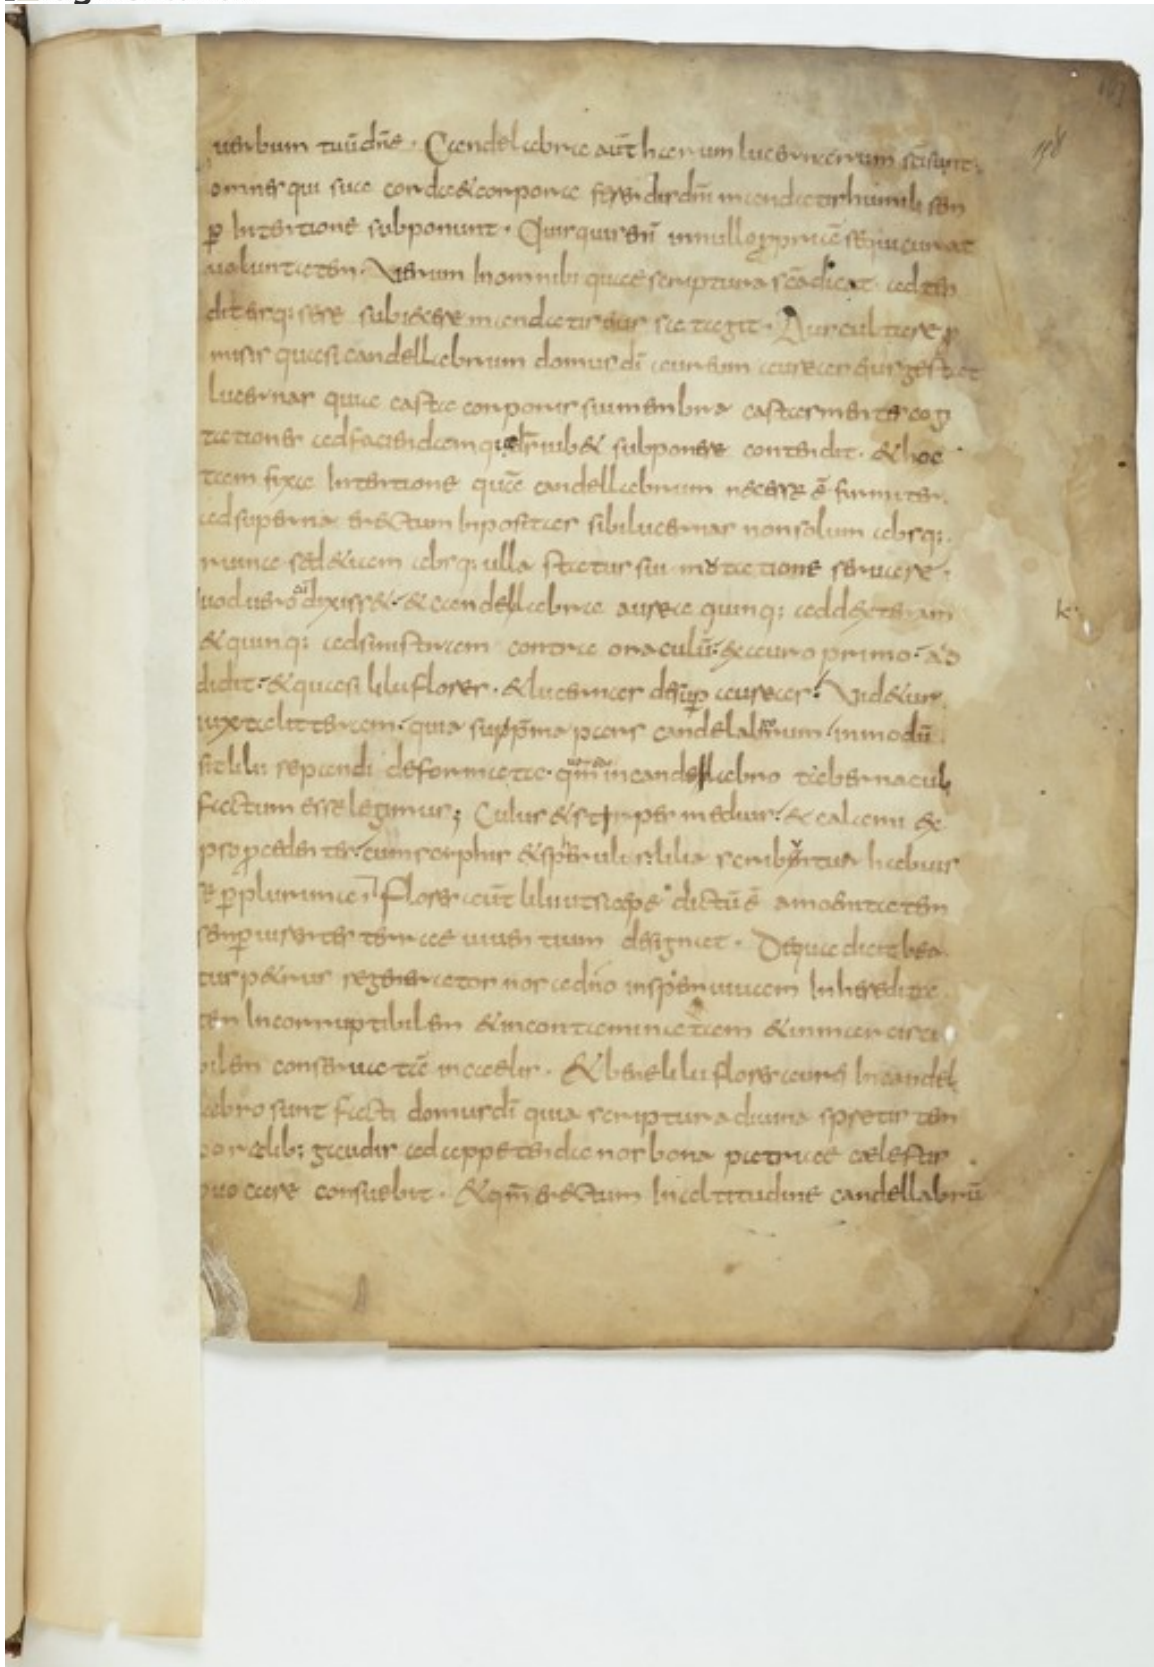 uerbum tuū dn̄e · Candelabra aūt harum lucernarum sc̄i sunt ·
omnes qui sua corda & corpora ferendis dn̄i mandatis humili sen
ꝑ Intentione subponunt · Quisquis enī in nullo ꝓpriā sequi curat
uoluntatem · Verum In omnib; quae scriptura sc̄a dicat ad ten
ditęrq; sese subicere mandatis sategit · Auscultare ꝓ
misis quasi candellabrum domus dī aureum aureas eius gestat
lucernas quia casta corporis sui membra castas mentes cogi
tationes ad faciendam quae dn̄s iub& subponere contendit · & hoc
tam fixa Intentione quē candellabrum necesse ē firmiter
ad superna erectum Inpositas sibi lucernas non solum absq;
ruina sed &iam absq; ulla status sui mutatione seruare ·
uod uero dixiss& & candellabra aurea quinq; ad dexteram
& quinq; ad sinistram contra oraculū ex auro primo ad
didit & quasi lilii flores · & lucernas desuꝑ aureas Vid&ur
iuxta litteram quia suprema pars candelabrum in modū
sit lilii repandi deformata · qm̄ in candellabro tabernaculi
factum esse legimus ; Cuius & stips per medius & calami ex
ipso ꝓcedentes cum scyphis & sperulis & lilia scribentur habuis
se ꝑplurima Flores aūt lilii ut saepe dictū ē amoenitatem
senꝑ uirentis terrae uiuentium designat · De qua dicit bea
tus p&rus regenerator nos a dn̄o in spem uiuam In heredita
tem Incorruptibilem & incontaminatam & inmarcisci
bilem conseruatā in caelis · & bene lilii flores aurei In candel
labro sunt facti domus dī quia scriptura diuina spretis ten
poralib; gaudiis ad appetenda nos bona patriae caelestis
uocare consuebit · & qm̄ erectum In altitudine candellabrū
k
158